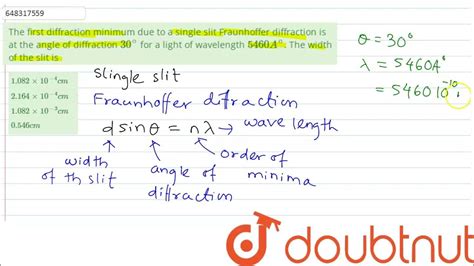 648317559
The first diffraction minimum due to a single slit Fraunhoffer diffraction is
at the angle of diffraction 30° for a light of wavelength 5460A°. The width
of the slit is
1.082 × 10⁻⁴cm
2.164 × 10⁻⁴cm
1.082 × 10⁻³cm
0.546cm
Slingle slit
Fraunhoffer diffraction
d sin θ = n λ → wave length
width of th slit
angle of diffraction
order of minima
θ = 30°
λ = 5460A°
= 5460 10⁻¹⁰
doubtnut